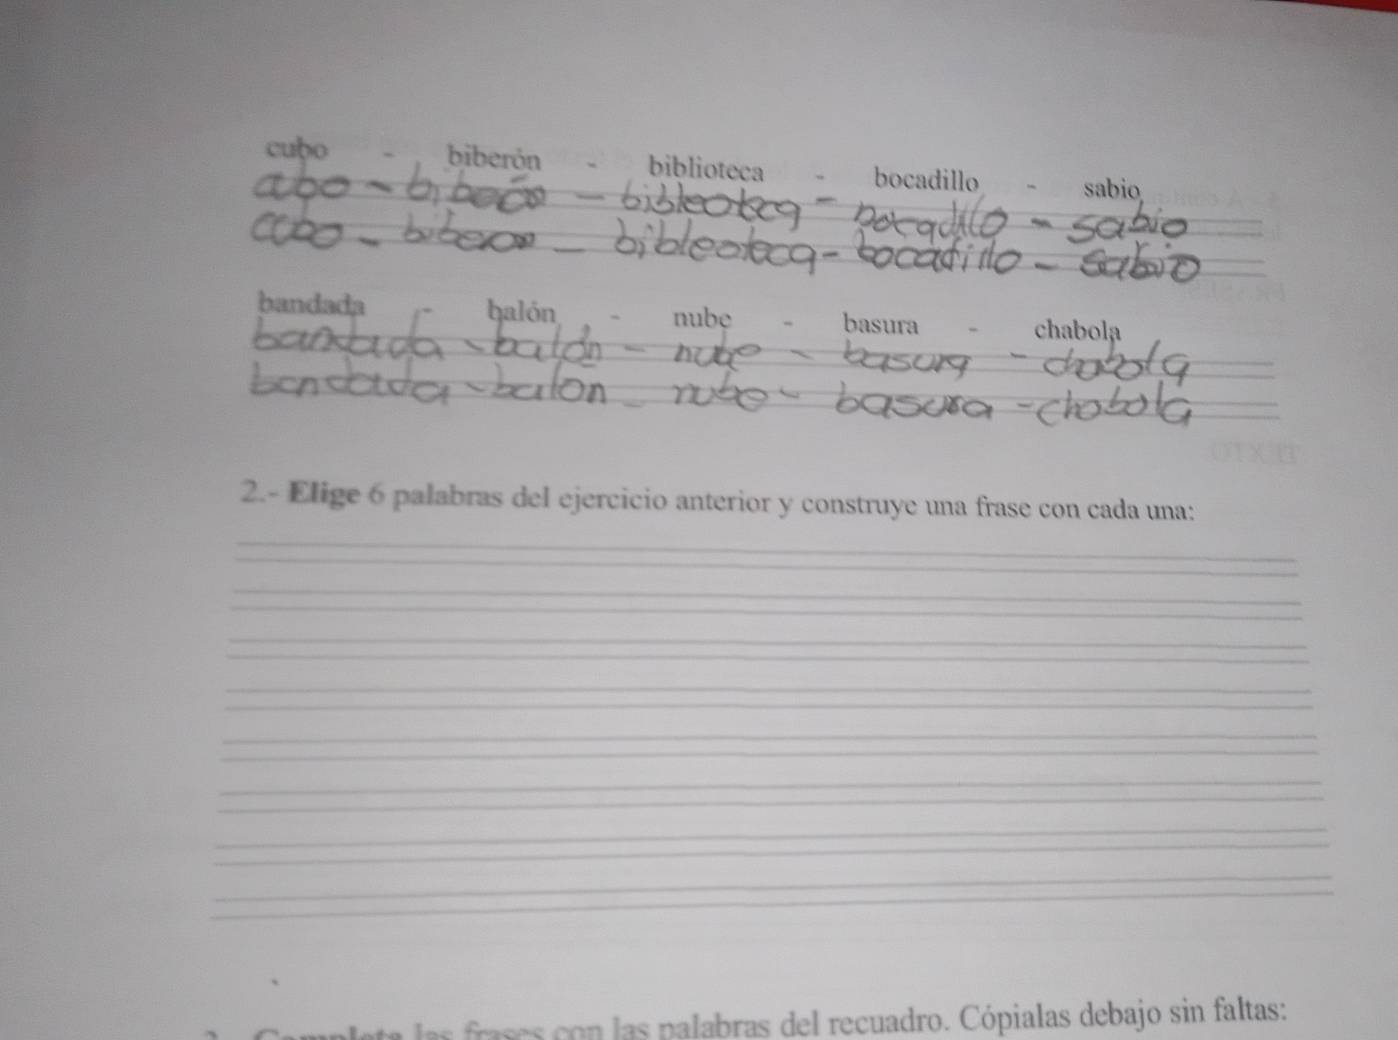 cubo - biberón - biblioteca - bocadillo - sabio
cubo - - bibleoteca - bocadillo - sabio
cubo - - bibleoteca - bocadillo - sabio
bandada - balón - nube - basura - chabola
bandada - balón - nube - basura - chabola
bandada - balon - nube - basura - chobola
2.- Elige 6 palabras del ejercicio anterior y construye una frase con cada una:
las frases con las palabras del recuadro. Cópialas debajo sin faltas: